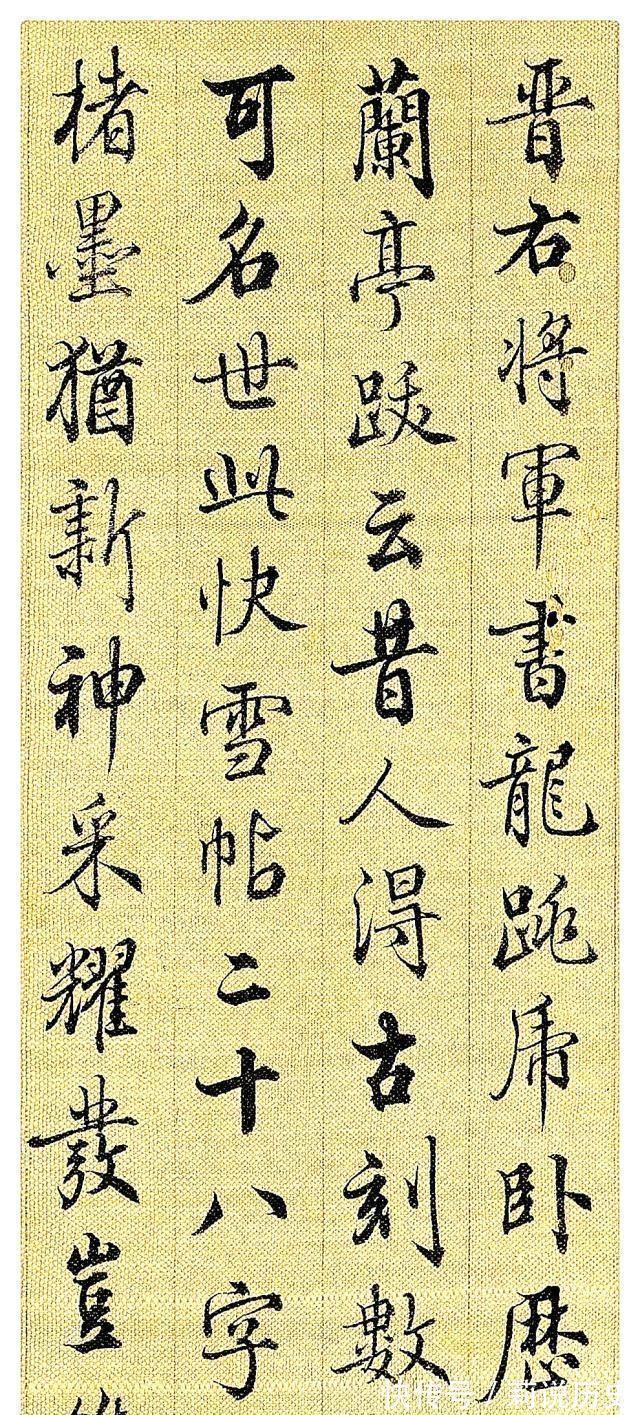 晋右将軍書龍跳虎卧歷
蘭亭跋云昔人得古刻數
可名世此快雪帖二十八字
楮墨猶新神采耀發豈
快传号/莉说历史